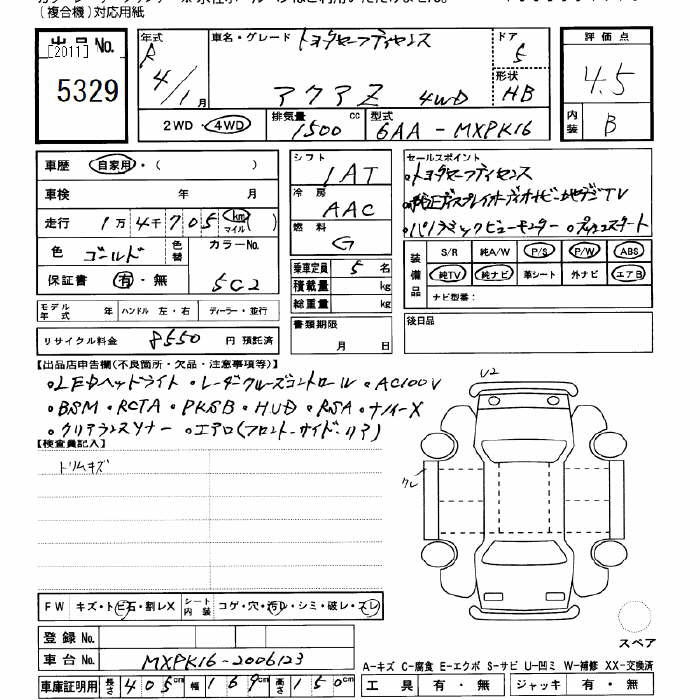 (複合機)対応用紙
出品No.
[2011]
5329
年式
R
4/1月
車名・グレード
トヨタセーフティセンス
アクア Z 4WD
ドア
5
形状
HB
評価点
4.5
内装
B
2WD・4WD
排気量
1500 cc
型式
6AA-MXPK16
車歴 自家用・( )
車検 年 月
走行 1万4千705 km マイル ( )
色 ゴールド
色替
カラーNo.
5C2
保証書 有・無
シフト
IAT
冷房
AAC
燃料
G
乗車定員 5 名
積載量 kg
総重量 kg
書類期限
月 日
セールスポイント
・トヨタセーフティセンス
・純正ディスプレイオーディオナビ・地デジTV
・パノラミックビューモニター ・プッシュスタート
装備品
S/R 純A/W P/S P/W ABS
純TV 純ナビ 革シート 外ナビ エアB
ナビ型番:
後日品
モデル年式 年 ハンドル 左・右 ディーラー・並行
リサイクル料金 8550 円 預託済
【出品店申告欄(不良箇所・欠品・注意事項等)】
・LEDヘッドライト・レーダクルーズコントロール・AC100V
・BSM・RCTA・PKSB・HUD・RSA・ナノイーX
・クリアランスソナー ・エアロ(フロント・サイド・リア)
【検査員記入】
トリムキズ
U2
クレ
FW キズ・トビ石・割レX
シート内装 コゲ・穴・汚レ・シミ・破レ・スレ
登録No.
車台No. MXPK16-2006123
車庫証明用 長さ 405cm 幅 169cm 高さ 150cm
スペア
A-キズ C-腐食 E-エクボ S-サビ U-凹ミ W-補修 XX-交換済
工具 有・無 ジャッキ 有・無